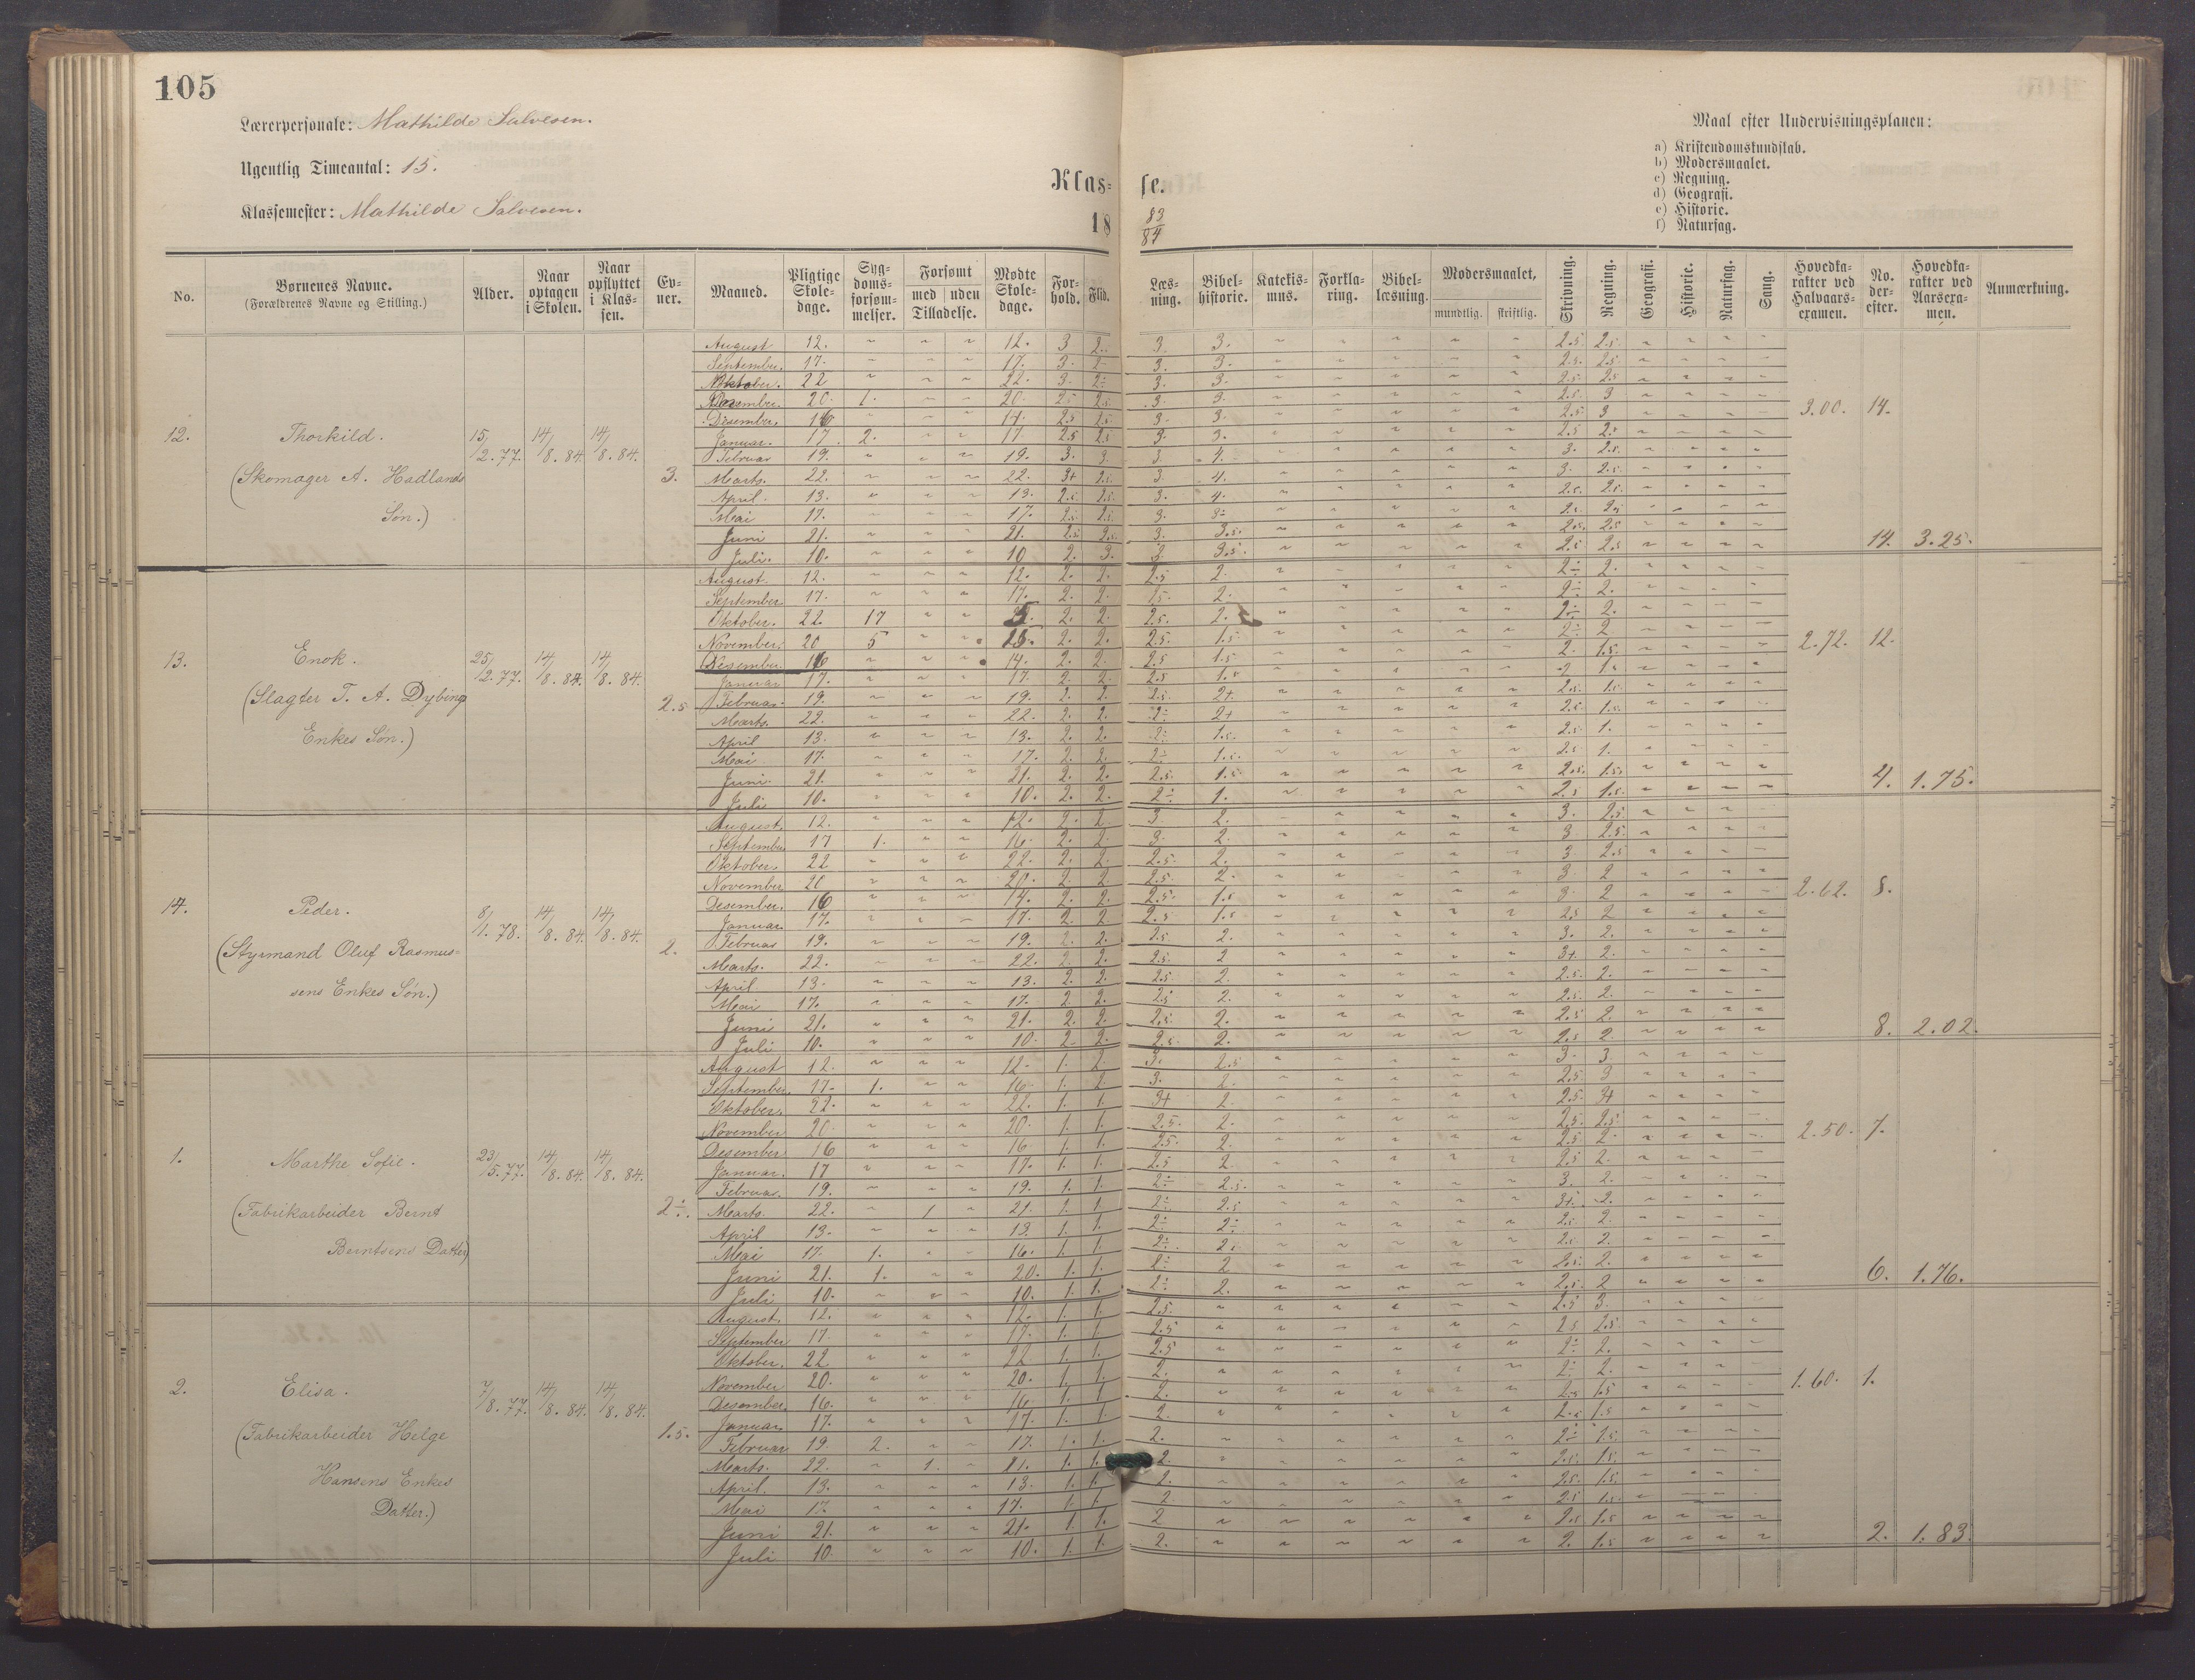 105
Lærerpersonale: Mathilde Salvesen.
Ugentlig Timeantal: 15.
Klassemester: Mathilde Salvesen.
Klas= se.
18 83/84
Maal efter Undervisningsplanen:
a) Kristendomskundskab.
b) Modersmaalet.
c) Regning.
d) Geografi.
e) Historie.
f) Naturfag.
No. Børnenes Navne. (Forældrenes Navne og Stilling.) Alder. Naar optagen i Skolen. Naar opflyttet i Klas=sen. Ev=ner. Maaned. Pligtige Skole=dage. Syg=doms=forsøm=melser. Forsømt med uden Tilladelse. Mødte Skole=dage. For=hold. Flid. Læs=ning. Bibel=historie. Katekis=mus. Forkla=ring. Bibel=læsning. Modersmaalet, mundtlig. skriftlig. Skrivning. Regning. Geografi. Historie. Naturfag. Sang. Hovedka=rakter ved Halvaars=examen. No. der=efter. Hovedka=rakter ved Aarsexa=men. Anmærkning.
August 12. 12. 3 2. 3. 3. 2.5 2.5
September. 17. 17. 3. 2 3. 3. 2.5. 2.5
Oktober. 22 22. 3. 2÷ 3. 3. 2.5 2.5
November. 20. 1. 20. 2.5 2.5 3. 3. 2.5 3
Desember. 16 14. 2.5 2.5 3. 3. 2.5 3
3.00. 14.
12. Thorkild. 15/2.77. 14/8.84. 14/8.84. 3.
Januar. 17. 2. 17 2.5 2.5 3. 3. 2.5 2+
Februar 19. 19. 3. 3. 3. 4. 3. 2.5
(Skomager A. Hadlands
Marts. 22. 22. 3+ 2.5 3. 4. 3. 2.5
April. 13. 13. 2.5 2.5 3. 4. 2.5 2.5
Søn.)
Mai 17. 17. 2.5 2.5 3. 3÷ 2.5 2.5
Juni 21. 21. 2.5 2.5 3. 3.5. 2.5. 2.5
Juli. 10. 10 2. 3. 3 3.5. 2.5 2.5
14. 3.25.
August. 12. 12. 2. 2. 2.5 2. 2÷ 2.
September. 17. 17. 2. 2. 2. 2÷ 2.
Oktober. 22. 17 5. 2. 2. 2.5. 2. 2÷ 2.
November. 20 5 15. 2. 2. 2.5. 1.5 2÷ 2
Desember. 16 14. 2. 2. 2.5 1.5 2. 1.5.
2.72. 12.
13. Enok. 25/2.77. 14/8.84. 14/8.84. 2.5
Januar 17. 17. 2. 2. 2.5 1.5
Februar. 19. 19. 2. 2. 2.5 2+ 2.5. 1.5.
(Slagter T. A. Dybing
Marts. 22. 22. 2. 2. 2÷ 2+ 2.5 1.5.
Enkes Søn.)
April 13. 13. 2. 2. 2÷ 1.5. 2.5 1.
Mai 17. 17. 2. 2. 2÷ 1.5. 2.5 1.
Juni 21. 21. 2. 2. 2.5. 1.5 2.5. 1.5.
Juli 10. 10. 2. 2. 2÷ 1. 2.5 1.5.
4. 1.75.
August. 12. 12. 2. 2 3. 2. 3. 2.5
September 17 1. 16. 2. 2. 3. 2. 3 2.5
Oktober. 22 22. 2. 2. 2.5. 2. 3. 2.5
November 20 20. 2. 2. 2.5. 2. 3 2
Desember. 16 14. 2. 2. 2.5. 1.5 3. 2
2.62. 8.
14. Peder. 8/1.78. 14/8.84. 14/8.84. 2.
Januar. 17. 17. 2. 2. 2.5 1.5 2.5 2
Februar 19. 19. 2. 2. 2.5 2. 3. 2.
(Styrmand Oluf Rasmus=
Marts. 22. 22. 2. 2. 2.5. 2 3+ 2.
April 13. 13. 2. 2. 2.5 2. 2.5. 2.
sens Enkes Søn.)
Mai 17. 17. 2. 2. 2.5 2. 2.5. 2.
Juni 21. 21. 2. 2. 2.5. 2. 2.5 2.
Juli 10. 10. 2. 2. 2.5 2. 2.5 2.
8. 2.02.
August 12. 12. 1. 2. 3. 2.5 3. 3.
September. 17. 1. 16. 1. 2. 3. 2. 2.5 3
Oktober. 22. 22. 1. 1. 3+ 2. 2.5. 3+
November 20. 20. 1. 1. 2.5. 2. 2.5. 2.5
Desember 16 16 1. 1. 2.5. 2. 2.5 2.
2.50. 7.
1. Marthe Sofie. 23/5.77. 14/8.84. 14/8.84. 2÷.
Januar. 17 17. 1. 1. 2.5 2. 2.5 2.
Februar. 19. 19. 1. 1. 2÷ 2.5. 3. 2.
(Fabrikarbeider Bernt
Marts. 22. 1 21. 1. 1. 2÷ 2.5 3+ 2.
April 13. 13. 1. 1. 2÷ 2÷ 2.5 2.
Berntsens Datter)
Mai 17. 1. 16. 1. 1. 2÷ 2. 2.5 2.
Juni 21. 1. 20. 1. 1. 2÷ 2 2.5. 2.
Juli 10. 10. 1. 1. 2÷ 2. 2.5. 2
6. 1.76.
August. 12. 12. 1. 1. 2.5. 2.5 3.
September 17. 17. 1. 1. 2.5 2.5 2.5
Oktober. 22 22 1. 1. 2.5 2÷ 2.
November 20. 20. 1. 1. 2. 2÷ 2.
Desember. 16. 16 1. 1 2. 2.5 1.5
1.60. 1.
2. Elisa. 7/8.77. 14/8.84. 14/8.84. 1.5.
Januar. 17. 17. 1. 1. 2. 2.5 1.5
(Fabrikarbeider Helge
Februar 19. 2. 17. 1. 1. 2. 2÷ 1.5.
Marts. 22. 1. 21. 1. 1. 2. 2.5. 1.5.
Hansens Enkes
April. 13. 13. 1. 1. 2. 2.5. 1.5.
Datter.)
Mai 17. 17. 1. 1. 2. 2.5 1.5.
Juni 21. 21. 1. 1. 2 2.5 1.5
Juli 10. 10. 1. 1. 2. 2. 1.5
2. 1.83.